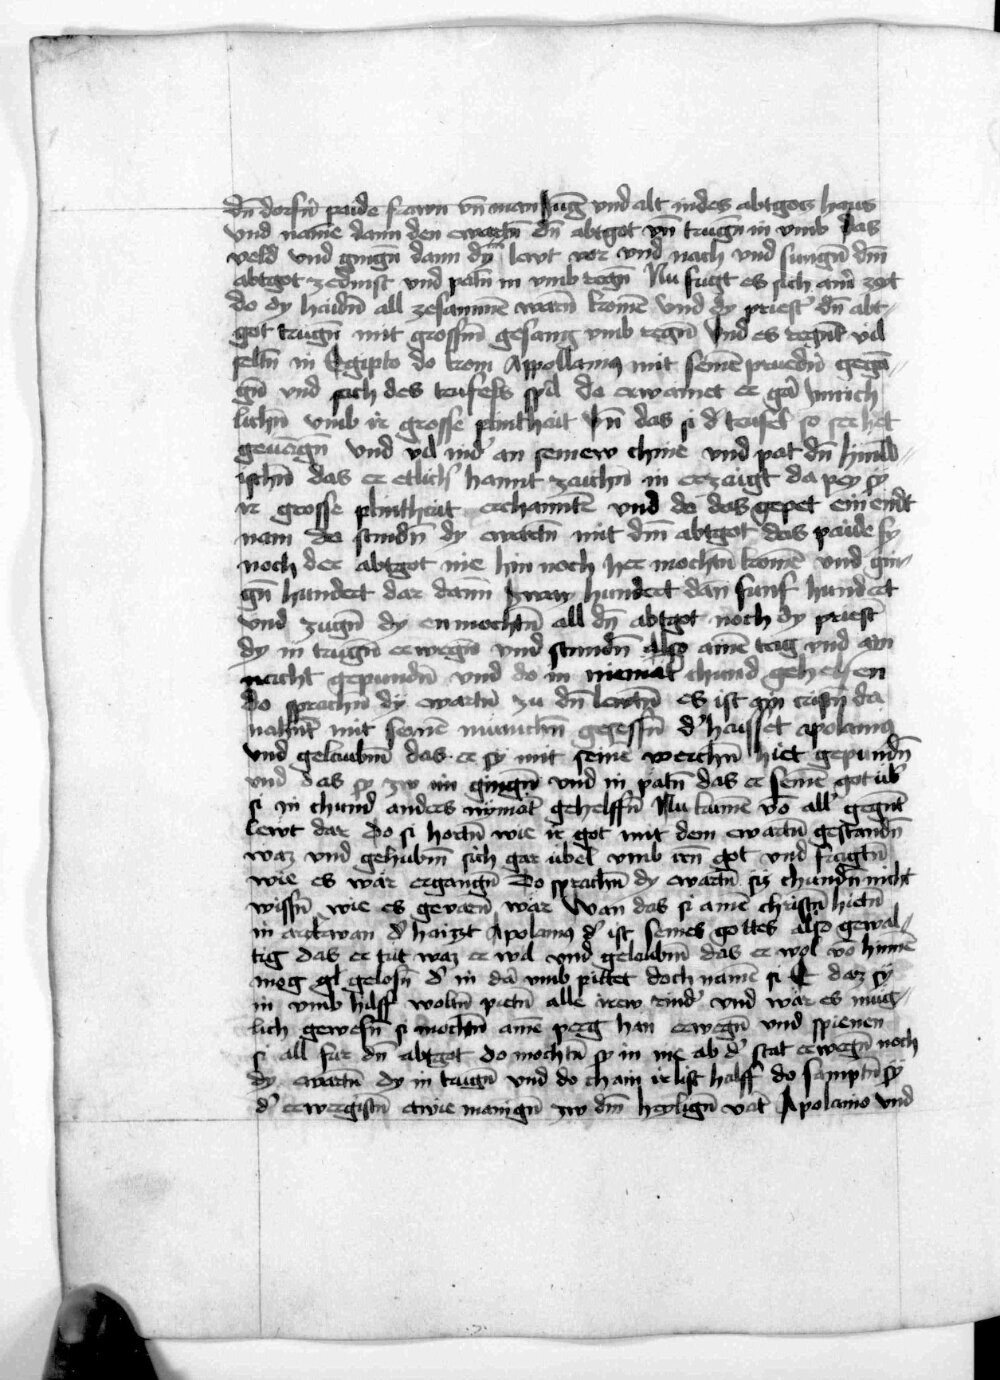 dn̄ dorfn̄ paide frawn vn̄ man Jūg vnd alt in des abtgotz haws
vnd namē dann den ewartn̄ dn̄ abtgot vn̄ trugn̄ in vmb das
veld vnd gingn̄ dann dy lewt vor vnd nach vnd sungn̄ dm̄
abtgot ze dinst vnd patn̄ in vmb regn̄ Nu fugt es sich ainˀ zeyt
do dy haidn̄ all zesammē warn̄ komē vnd dy priestˀ dn̄ abt-
got trugn̄ mit grossm̄ gesang vmb regn̄ Vnd es regnt vil
seltn̄ in Egipto do kom Appollanius mit seinē pruedn̄ gegā-
gn̄ vnd sach des teufels spil do erwainet er gar Innich
lichn̄ vmb ir grosse plinthait vn̄ das si dˀ teufel so ser het
gevangn̄ vnd vil nidˀ an seinew chnie vnd pat dn̄ himl-
ischn̄ das er etlichˀ hannt zaichn̄ in erzaigt da pey sy
ir grosse plinthait erchanntn̄ vnd do das gepet ein endt
nam do stundn̄ dy ewartn̄ mit dm̄ abtgot das paide sy
noch der abtgot nie hin noch her mochtn̄ komē vnd gin-
gn̄ hundert dar dann zway hundert dan funf hundert
vnd zugn̄ dy enmochtn̄ all dn̄ abtgot noch dy priestˀ
dy in trugn̄ erwegn̄ vnd stundn̄ also ainē tag vnd ain
nacht gepundn̄ vnd do in niemāt chund gehelfen
do sprachn̄ dy ewartn̄ zu dn̄ lewtn̄ es ist ain cristn̄ da
nahnt mit seinē munichn̄ gesessn̄ dˀ haisset apolanius
vnd gelaubm̄ das er sy mit seinē werchn̄ hiet gepundn̄
vnd das sy zw im gingn̄ vnd in patn̄ das er seinē got
si in chund anders nymāt gehelffn̄ Nu kamē vō allˀ gegnt
lewt dar Do si hortn̄ wie ir got mit dem ewartn̄ gestandn̄
waz vnd gehubm̄ sich gar übel vmb irn̄ got vnd fragtn̄
wie es wär ergangn̄ Do sprachn̄ dy ewartn̄ sy chundn̄ nicht
wissn̄ wie es gevarn̄ wär Wan das si ainē christn̄ hietn̄
in dˀ haizzt Apolanius dˀ ist seines gottes also gewal-
tig das er tut waz er wil vnd gelaubm̄ das er wol vō hinnē
mog gelosn̄ dˀ in dā vmb pittet doch namē si daz sy
in vmb hilff woltn̄ pietn̄ alle irew rindˀ vnd wär es mug-
lich gewesn̄ si mochtn̄ ainē perg han erwegn̄ vnd spienen
si all fur dn̄ abtgot do mochtn̄ sy in nie ab dˀ stat erwegn̄ noch
dy ewartn̄ dy in trugn̄ vnd do chain ir list halff do samptn̄ sy
dˀ erwergistn̄ etwie manign̄ zw dm̄ heylign̄ vatˀ Apolanio vnd